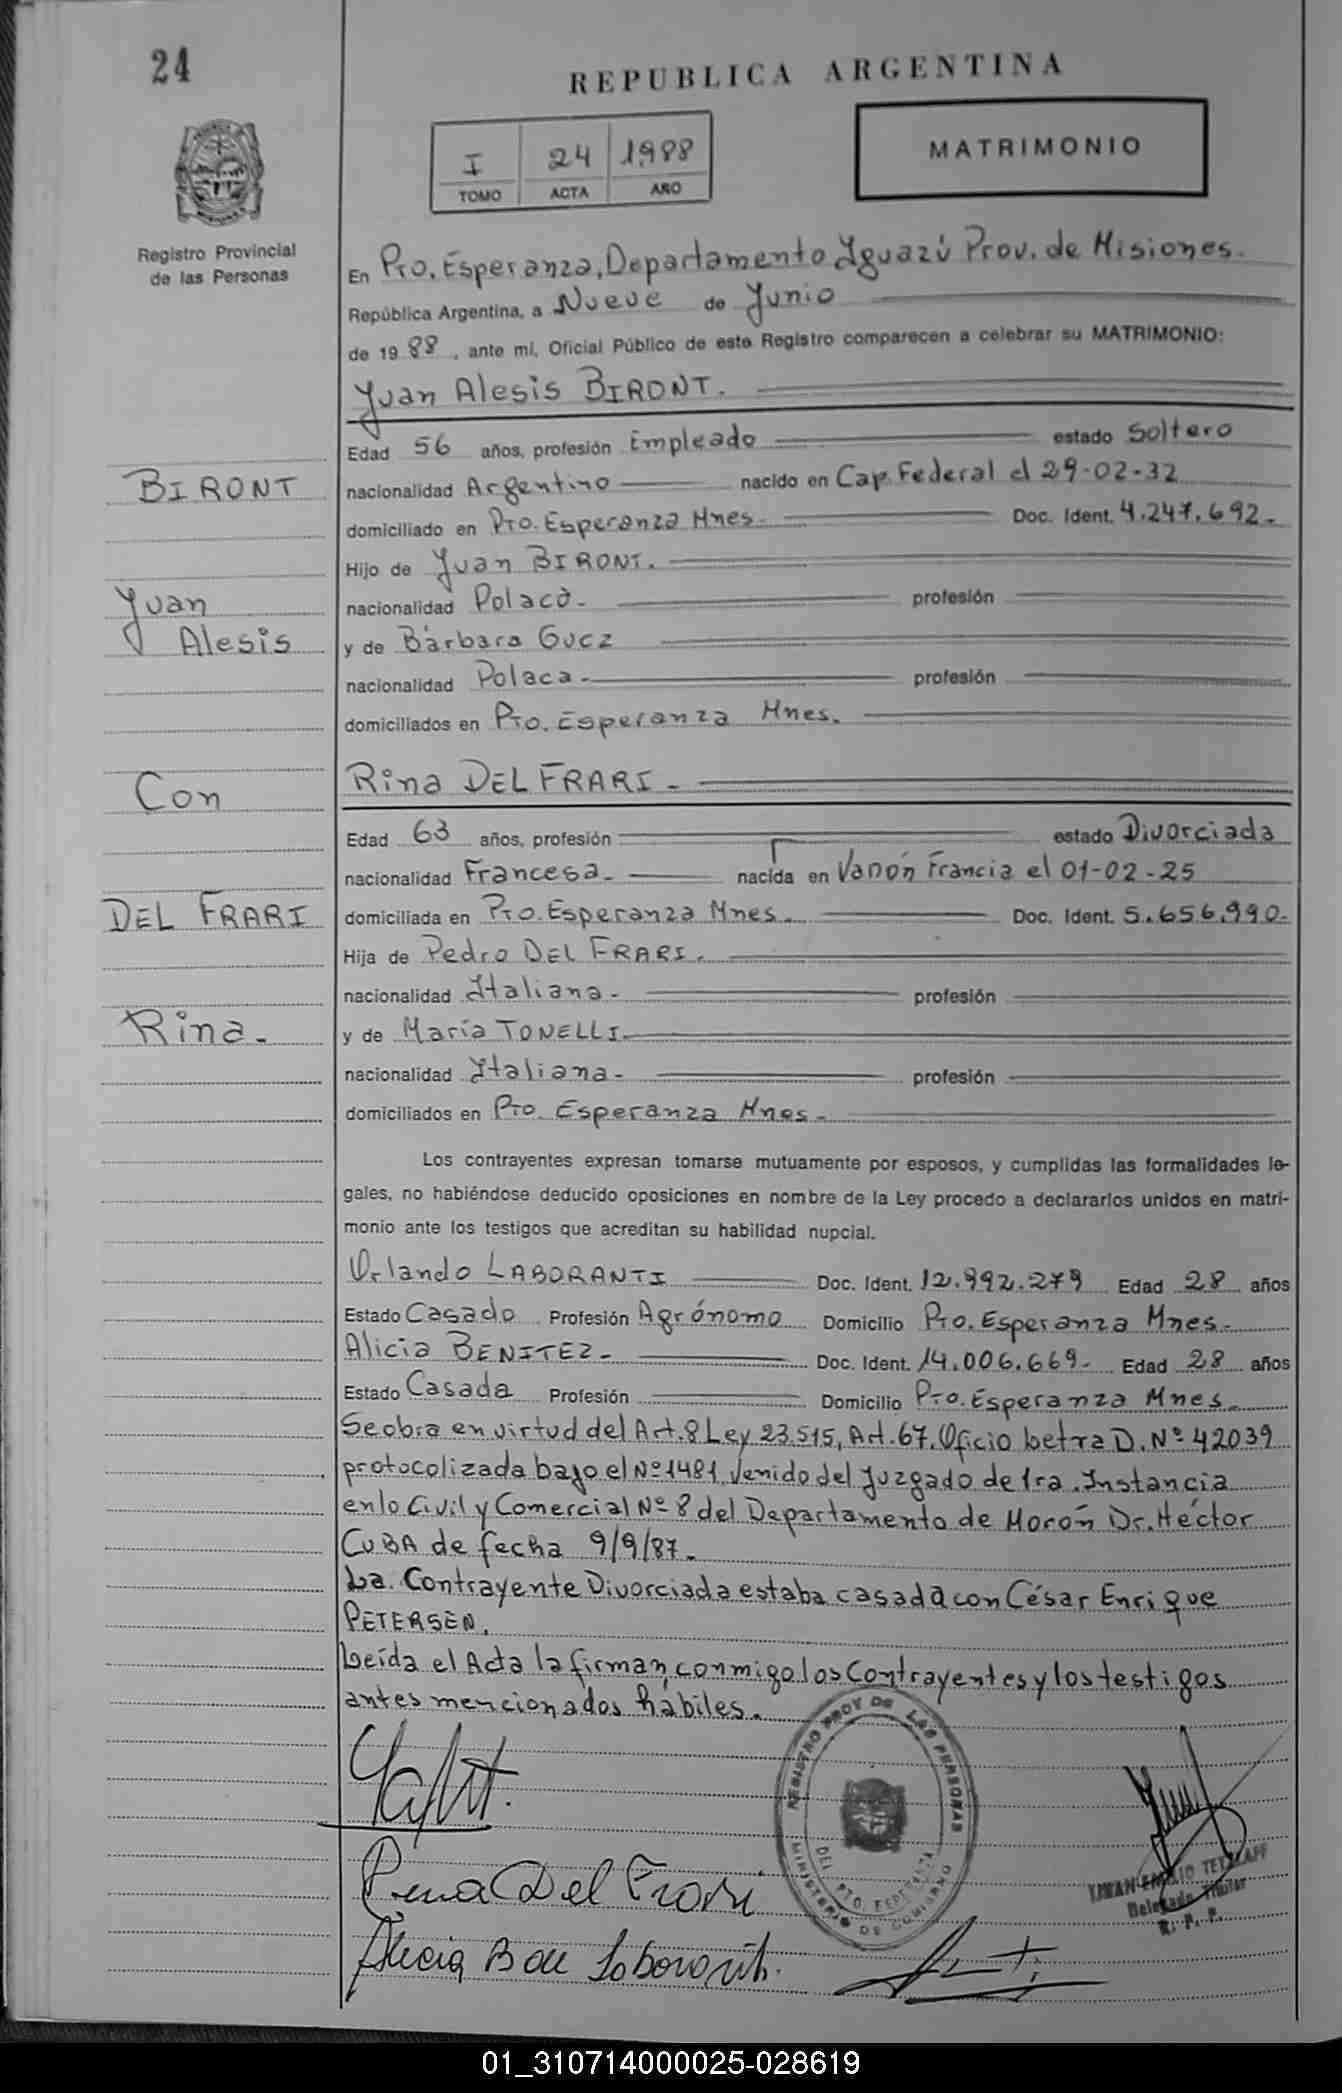 24
REPUBLICA ARGENTINA
I 24 1988
TOMO ACTA AÑO
MATRIMONIO
Registro Provincial
de las Personas
En Pto. Esperanza, Departamento Yguazú Prov. de Misiones.
República Argentina, a Nueve de Junio
de 19 88, ante mí, Oficial Público de este Registro comparecen a celebrar su MATRIMONIO:
Juan Alesis BIRONT.
Edad 56 años, profesión Empleado estado Soltero
BIRONT
nacionalidad Argentino nacido en Cap. Federal el 29-02-32
domiciliado en Pto. Esperanza Mnes. Doc. Ident. 4.247.692.-
Hijo de Juan BIRONT.
Juan
nacionalidad Polaco. profesión
Alesis
y de Bárbara Gucz
nacionalidad Polaca. profesión
domiciliados en Pto. Esperanza Mnes.
Con
Rina DEL FRARI.
Edad 63 años, profesión estado Divorciada
nacionalidad Francesa. nacida en Francia el 01-02-25
DEL FRARI
domiciliada en Pto. Esperanza Mnes. Doc. Ident. 5.656.990.
Hija de Pedro DEL FRARI.
nacionalidad Italiana. profesión
Rina.
y de María TONELLI.
nacionalidad Italiana. profesión
domiciliados en Pto. Esperanza Mnes.
Los contrayentes expresan tomarse mutuamente por esposos, y cumplidas las formalidades le-
gales, no habiéndose deducido oposiciones en nombre de la Ley procedo a declararlos unidos en matri-
monio ante los testigos que acreditan su habilidad nupcial.
Orlando LABORANTI Doc. Ident. 12.992.279 Edad 28 años
Estado Casado Profesión Agrónomo Domicilio Pto. Esperanza Mnes.
Alicia BENITEZ. Doc. Ident. 14.006.669. Edad 28 años
Estado Casada Profesión Domicilio Pto. Esperanza Mnes.
Se obra en virtud del Art. 8 Ley 23.515, Art. 67. Oficio Letra D. Nº 42039
protocolizada bajo el Nº 1481 Venido del Juzgado de 1ra. Instancia
en lo Civil y Comercial Nº 8 del Departamento de Morón Dr. Héctor
CUBA de fecha 9/9/87.
La Contrayente Divorciada estaba casada con César Enrique
PETERSEN.
Leída el Acta la firman, conmigo los Contrayentes y los testigos
antes mencionados hábiles.
REGISTRO PROV DE LAS PERSONAS
DEL. PTO. ESPERANZA
MINISTERIO DE GOBIERNO
Delegado Titular
R. P. P.
Rina Del Frari
Alicia B de Laboranti.
01_310714000025-028619